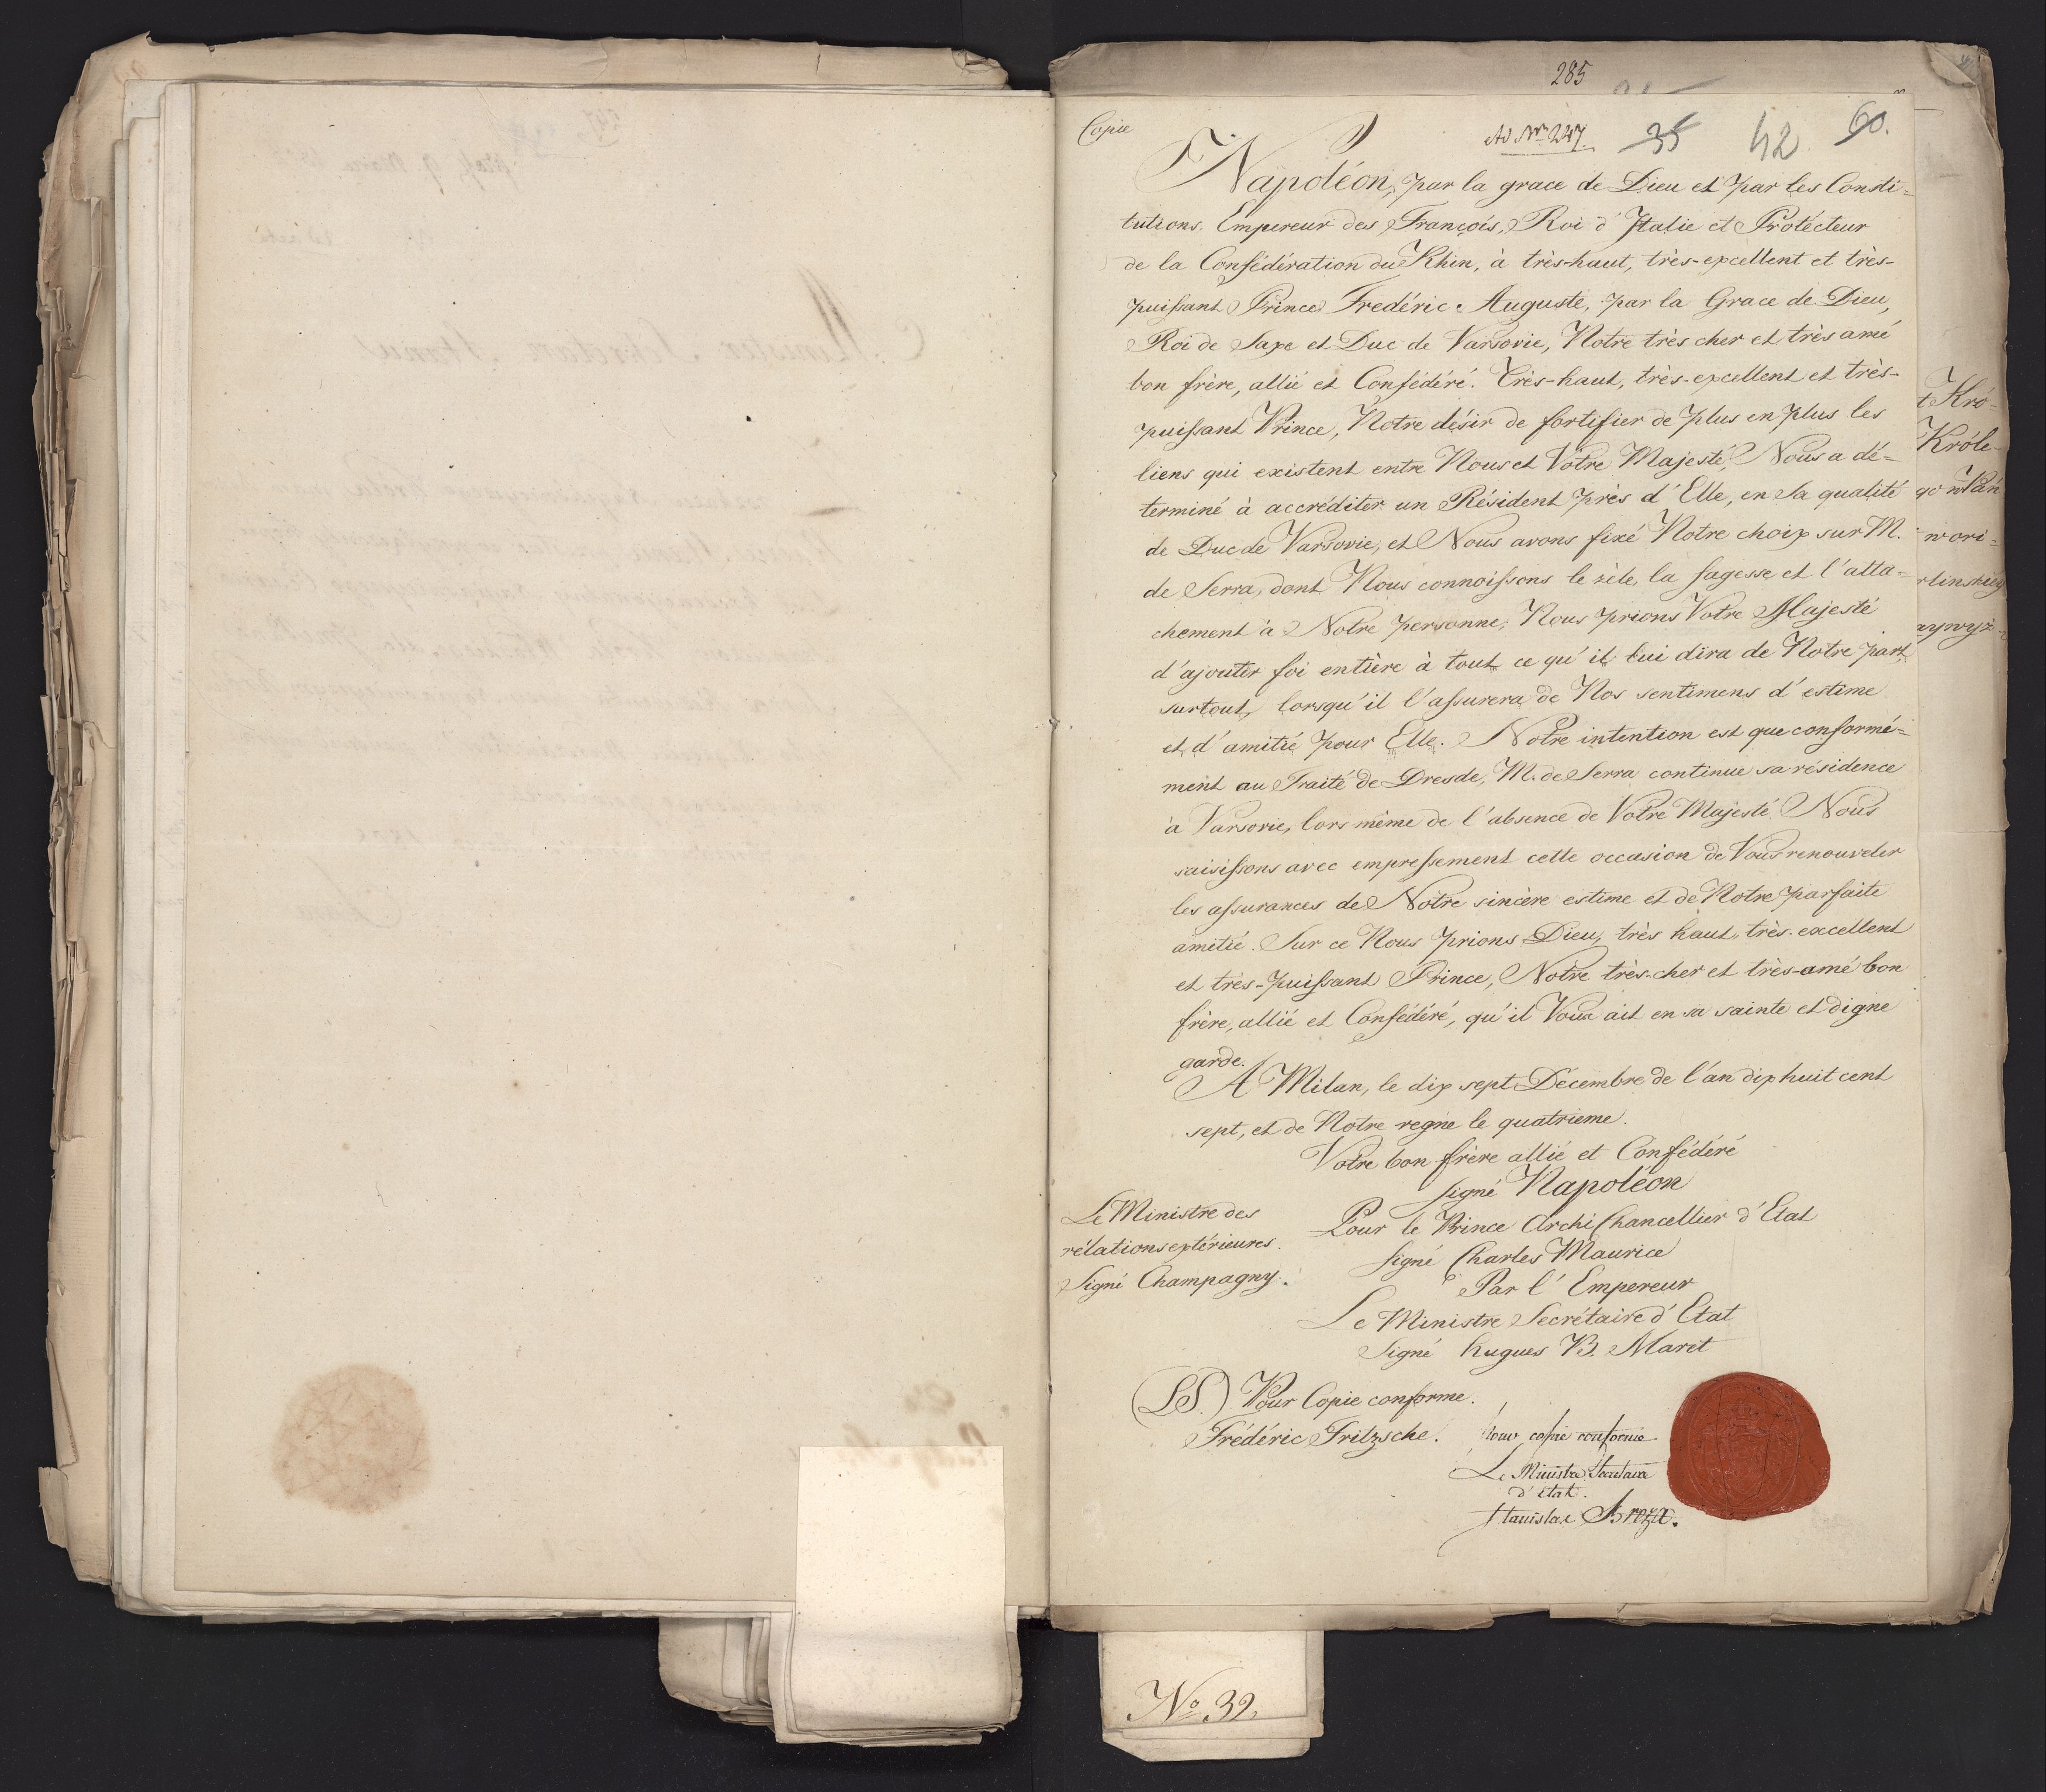 285
Copie
Ad Nr 247.
35
42.
60.
Napoléon, par la grace de Dieu et par les Consti=
tutions, Empereur des François, Roi d'Italie et Protécteur
de la Confédération du Rhin, à très-haut, très-excellent et très-
puissant Prince Fredéric Auguste, par la Grace de Dieu,
Roi de Saxe et Duc de Varsovie, Notre très cher et très amé
bon frère, allié et Confédéré. Très-haut, très-excellent et très-
puissant Prince, Notre désir de fortifier de plus en plus les
liens qui existent entre Nous et Votre Majesté, Nous a dé=
terminé à accréditer un Résident près d'Elle, en Sa qualité
de Duc de Varsovie, et Nous avons fixé Notre choix sur M.
de Serra, dont Nous connoissons le zèle, la sagesse et l'atta=
chement à Notre personne; Nous prions Votre Majesté
d'ajouter foi entière à tout ce qu'il lui dira de Notre part,
surtout, lorsqu'il l'assurera de Nos sentimens d'estime
et d'amitié pour Elle. Notre intention est que conformé=
ment au Traité de Dresde, M. de Serra continue sa résidence
à Varsovie, lors même de l'absence de Votre Majesté. Nous
saisissons avec empressement cette occasion de Vous renouveler
les assurances de Notre sincère estime et de Notre parfaite
amitié. Sur ce Nous prions Dieu, très haut, très-excellent
et très-puissant Prince, Notre très-cher et très-amé bon
frère, allié et Confédéré, qu'il Vous ait en sa sainte et digne
garde.
A Milan, le dix sept Décembre de l'an dix huit cent
sept, et de Notre regne le quatrieme.
Votre bon frère allié et Confédéré
signé Napoléon
Le Ministre des
rélations extérieures.
Signé Champagny.
Pour le Prince Archi Chancellier d'Etat
signé Charles Maurice
Par l'Empereur
Le Ministre Secrétaire d'Etat
Signé hugues B. Maret
(LS.) Pour Copie conforme.
Frédéric Fritzsche.
Pour copie conforme
Le Ministre Secretaire
d'etat.
Stanislas Breza.
t Kró-
Króle-
wori=
No 39.